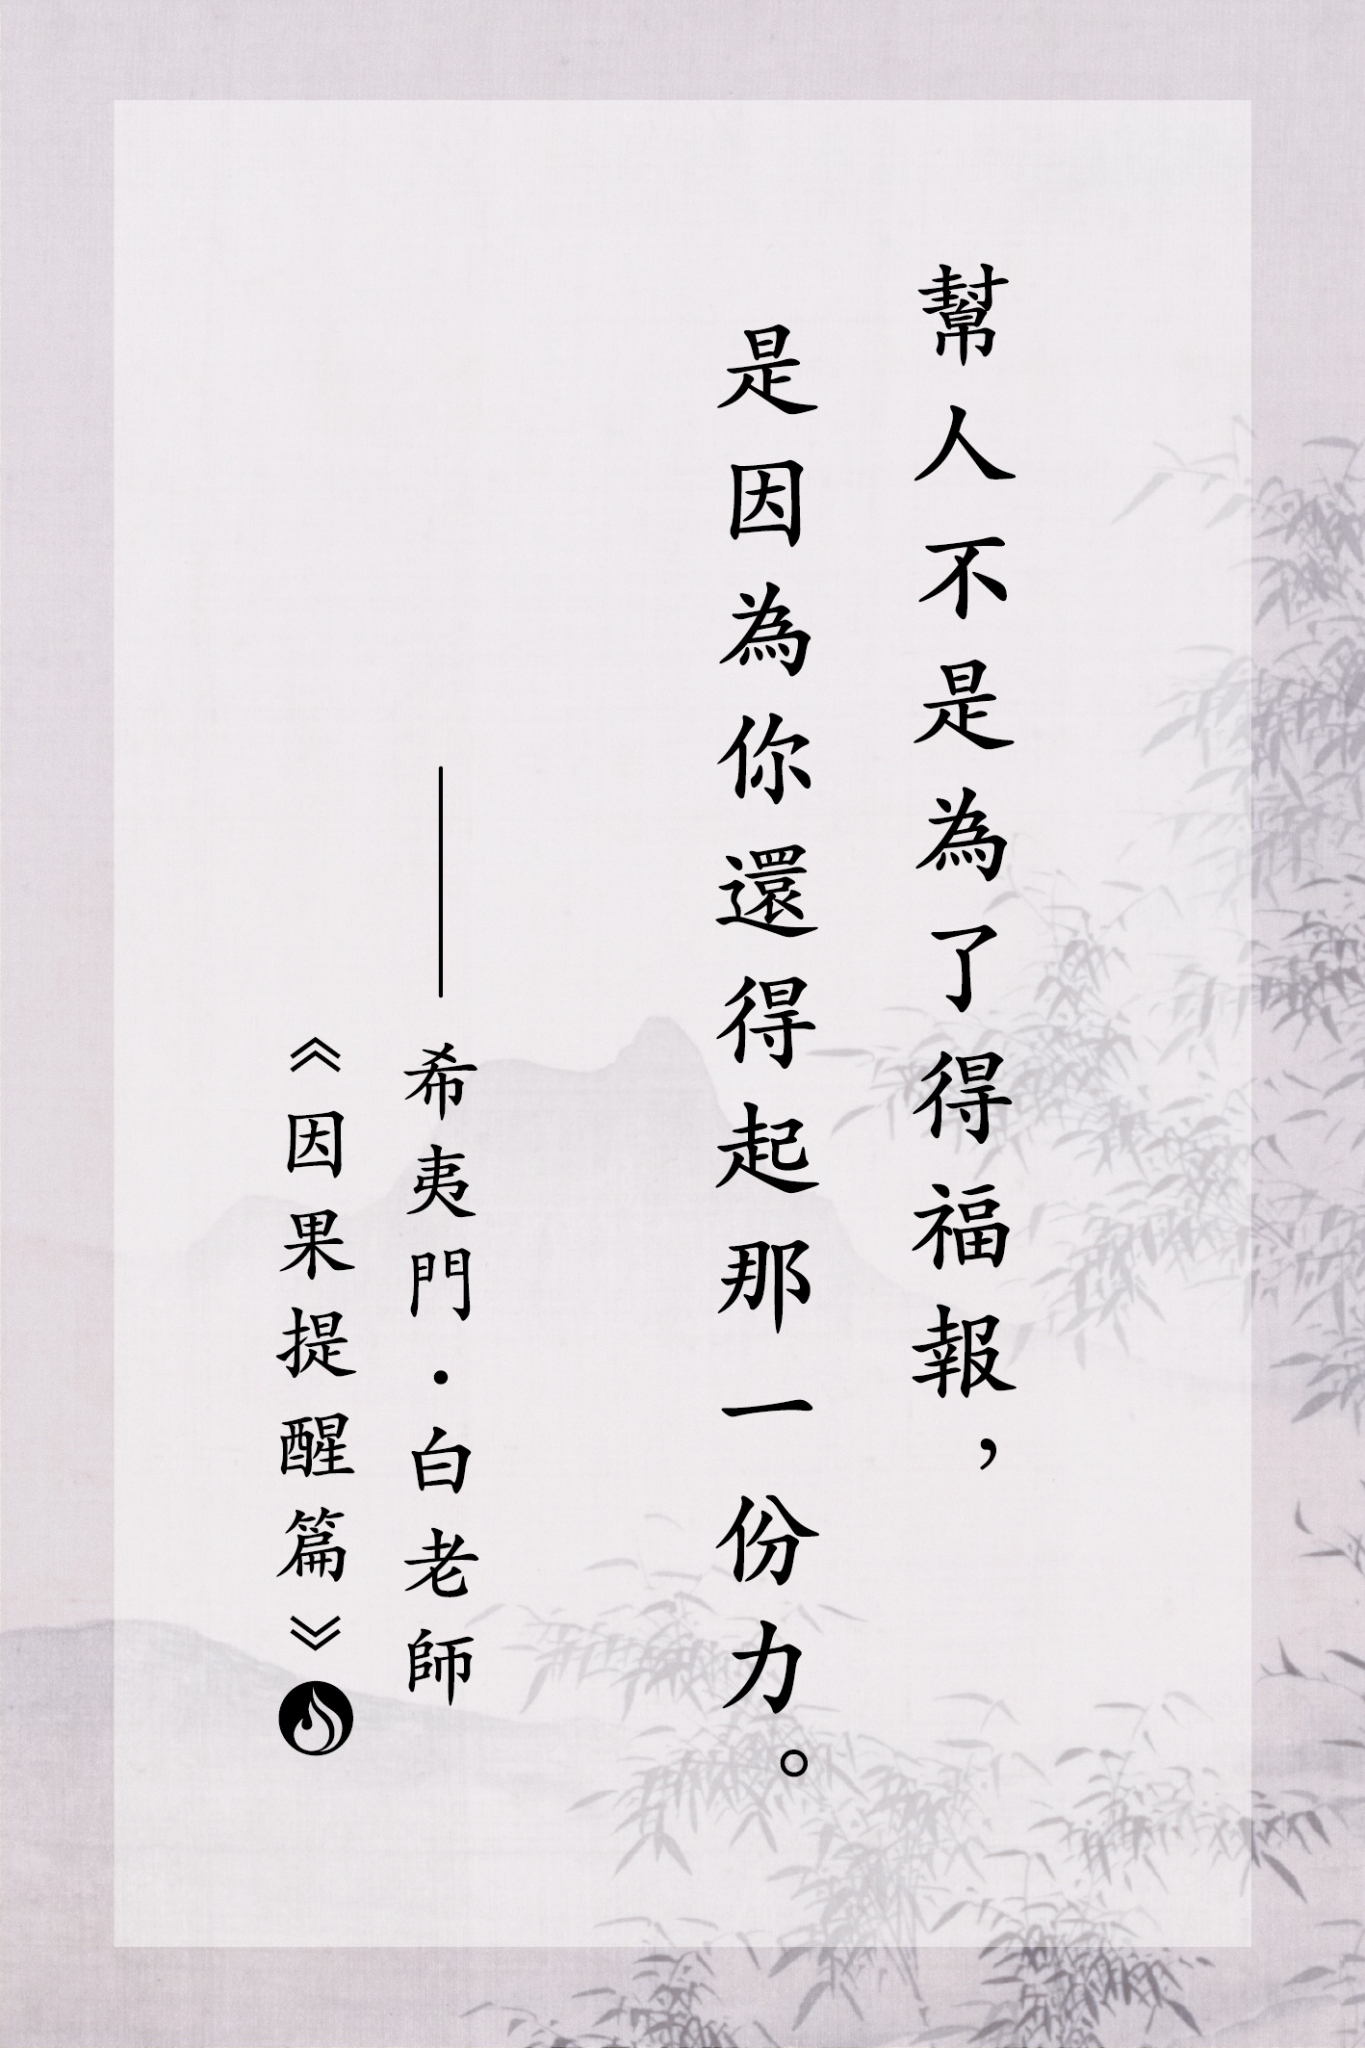 幫人不是為了得福報，
是因為你還得起那一份力。
——希夷門．白老師
《因果提醒篇》